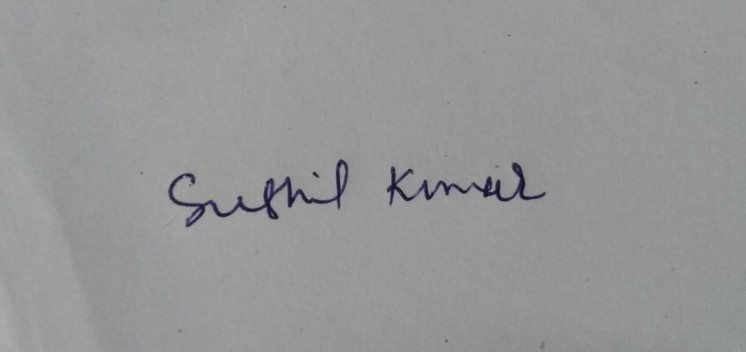 Sushil Kumar